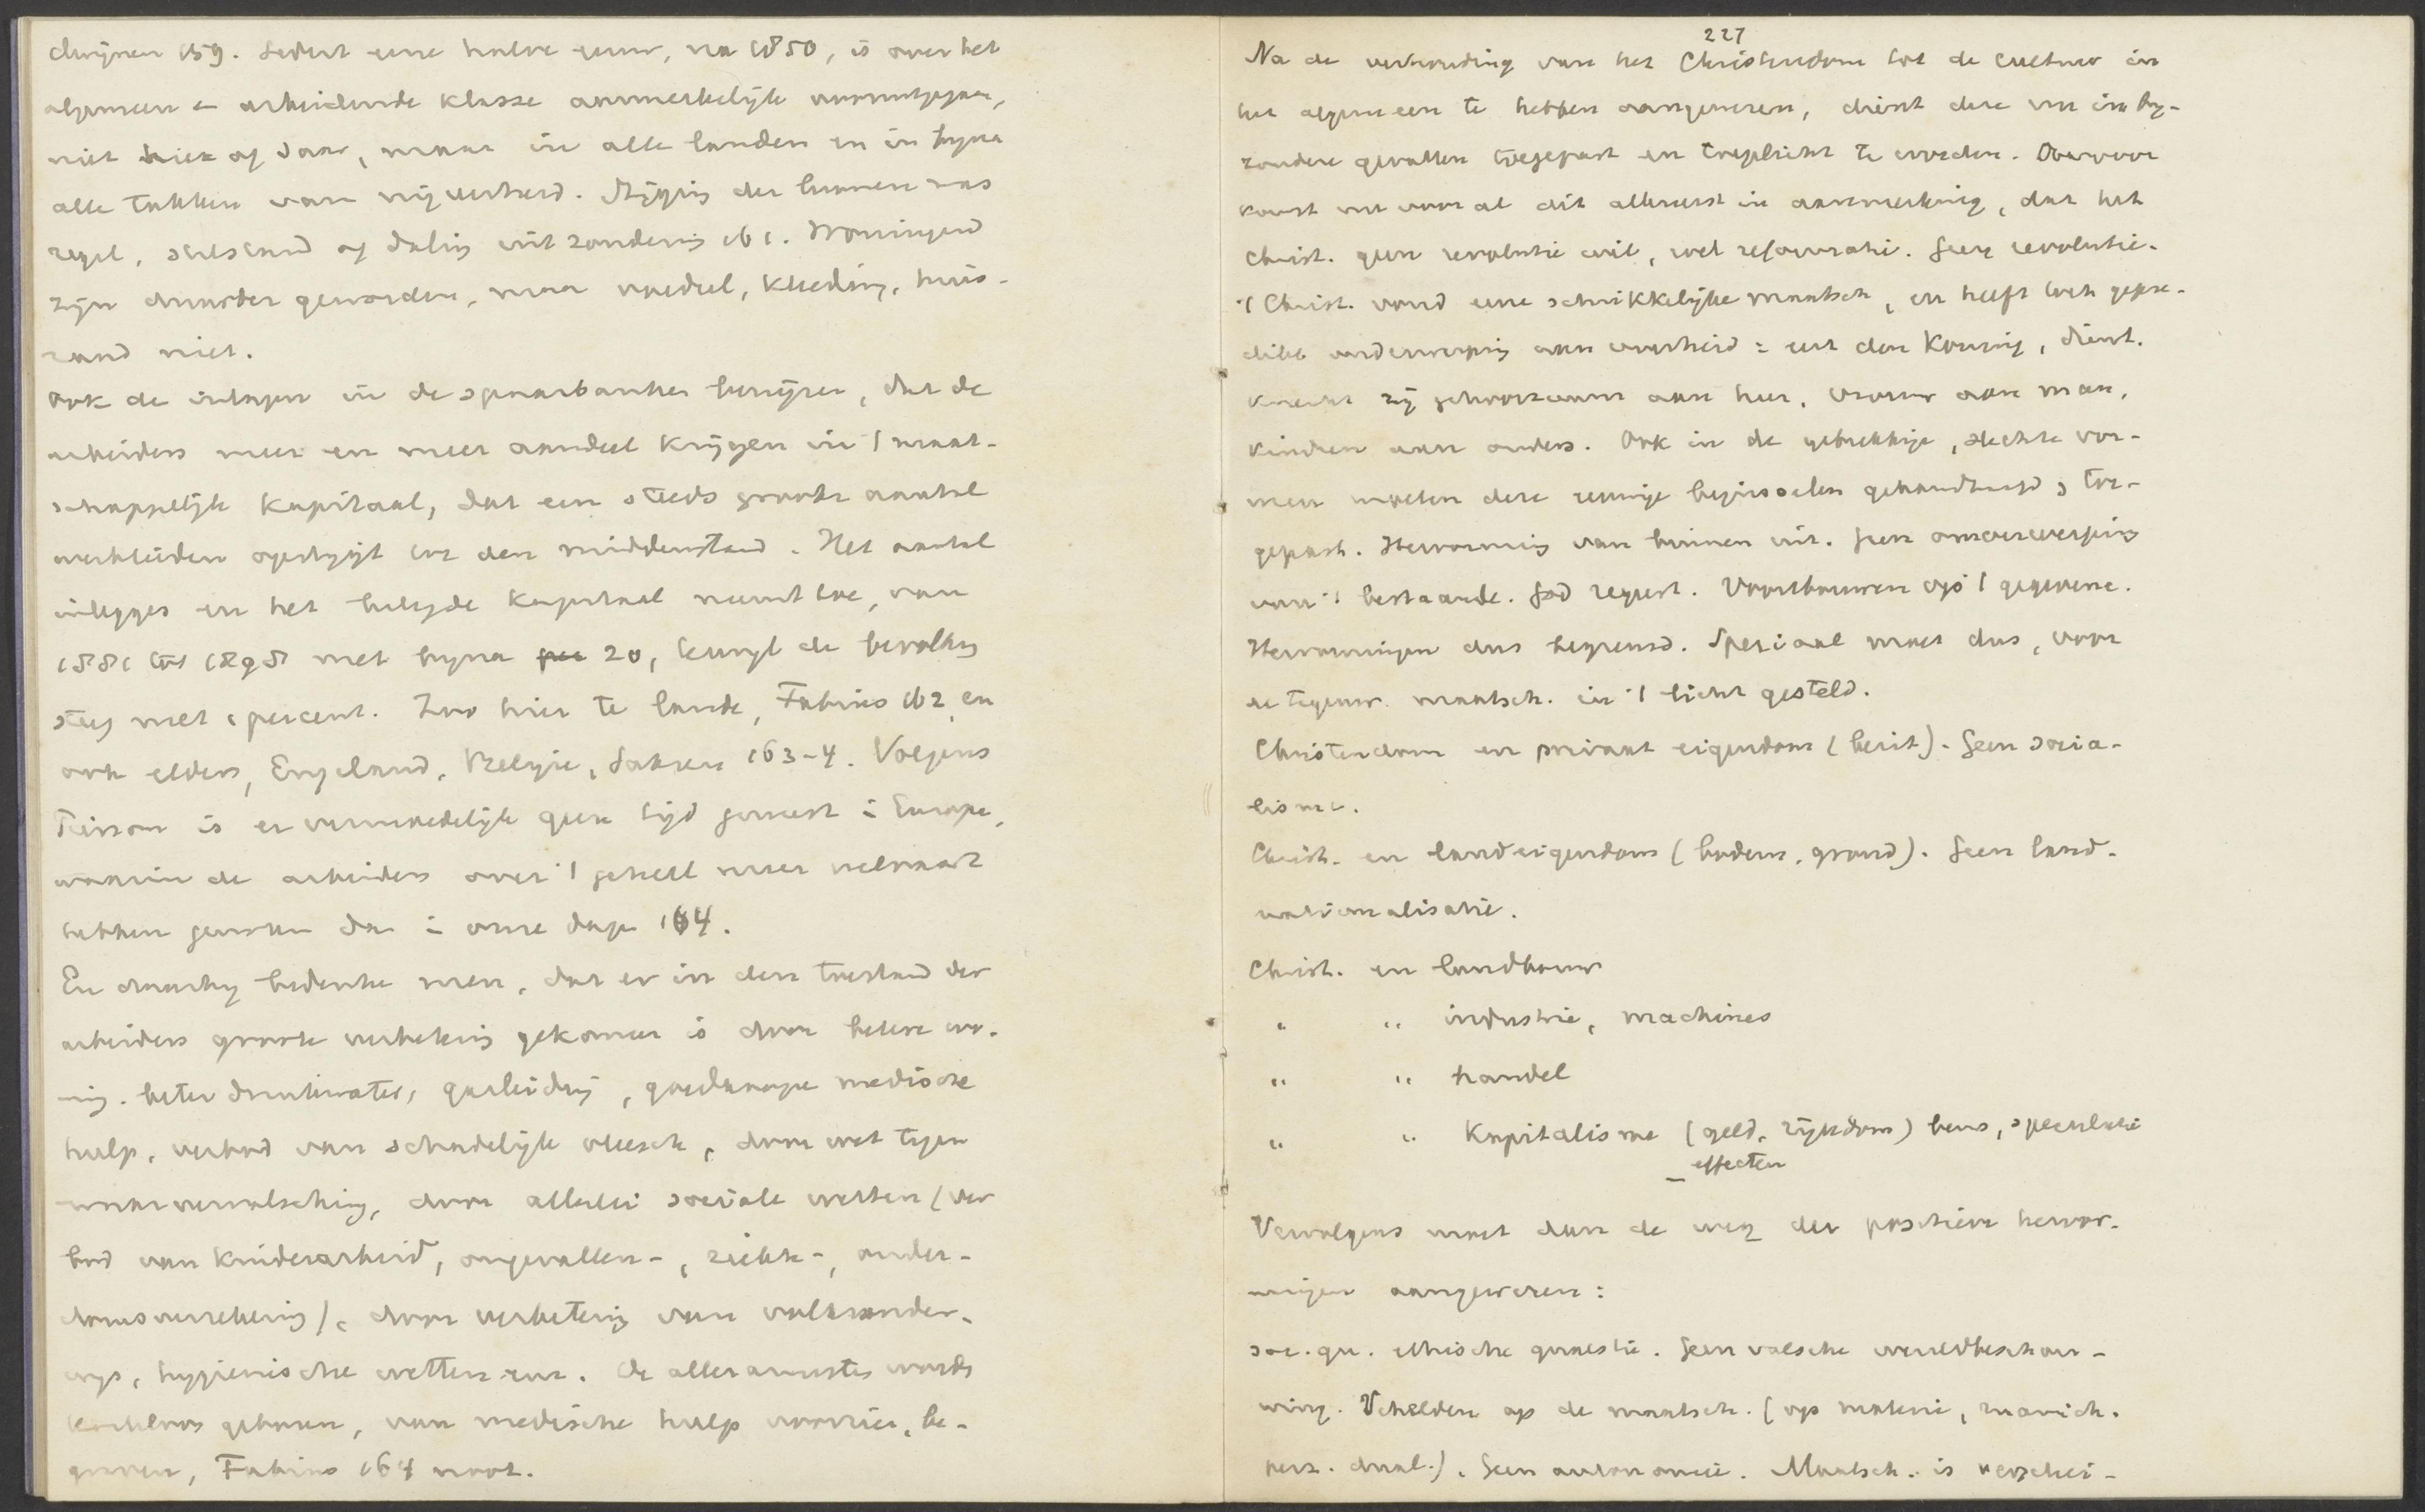 dwijnen 159. Sedert eene halve eeuw, na 1850, is over het
algemeen de arbeidende klasse aanmerkelijk vooruitgegaan,
niet hier of daar, maar in alle landen en in bijna
alle takken van nijverheid. Stijging der loonen was
regel, stilstand of daling uitzondering 161. Woningen
zijn duurder geworden, maar voedsel, kleeding, huis-
raad niet.
Ook de inlagen in de spaarbanken bewijzen, dat de
arbeiders meer en meer aandeel krijgen in 't maat-
schappelijk kapitaal, dat een steeds grooter aantal
werklieden opstijgt tot den middenstand. Het aantal
inleggers en het belegde kapitaal neemt toe, van
1881 tot 1898 met bijna 20, terwijl de bevolking
steeg met 1 percent. Zoo hier te lande, Fabius 162, en
ook elders, Engeland, België, Saksen 163-4. Volgens
is er vermoedelijk geen tijd geweest in Europa,
waarin de arbeiders over 't geheel meer welvaart
hebben genoten dan in onze dagen 164.
En daarbij bedenke men, dat er in den toestand der
arbeiders groote verbetering gekomen is door betere wo-
ning, beter drinkwater, gasleiding, goedkoope medische
hulp, verbod van schadelijk vleesch, door wet tegen
waarvervalsching, door allerlei sociale wetten (ver
bod van kinderarbeid, ongevallen-, ziekte-, ouder-
domsverzekering), door verbetering van volksonder-
wijs, hygienische wetten enz. De allerarmsten worden
kosteloos geboren, van medische hulp voorzien, be-
graven, Fabius 164 noot.
227
Na de verhouding van het Christendom tot de cultuur in
het algemeen te hebben aangewezen, dient deze nu in bij-
zondere gevallen toegepast en toegelicht te worden. Daarvoor
komt nu vooral dit allereerst in aanmerking, dat het
Christ. geen revolutie wil, wel reformatie. Geen revolutie.
't Christ. vond eene schrikkelijke maatsch, en heeft toch gepre-
dikt onderwerping aan overheid: eert den Koning, dienst.
knecht zij gehoorzaam aan heer, vrouw aan man,
kinderen aan ouders. Ook in de gebrekkige, slechte vor-
men moeten deze eeuwige beginselen gehandhaafd, toe-
gepast. Hervorming van binnen uit. Geen omverwerping
van 't bestaande. God regeert. Voortbouwen op 't gegevene.
Hervormingen dus begrensd. Speciaal moet dus, voor
de tegenw. maatsch. in 't licht gesteld.
Christendom en privaat eigendom (bezit). Geen socia-
lisme.
Christ. en landeigendom (bodem, grond). Geen land-
nationalisatie.
Christ. en landbouw
" " industrie, machines
" " handel
" " Kapitalisme (geld, rijkdom) beurs, speculatie
- effecten
Vervolgens moet dan de weg der positieve hervor-
mingen aangewezen:
soc. qu. ethische quaestie. Geen valsche wereldbeschou-
wing. Schelden op de maatsch. (op materie, manich.
perz. dual.). Geen autonomie. Maatsch. is verschei-